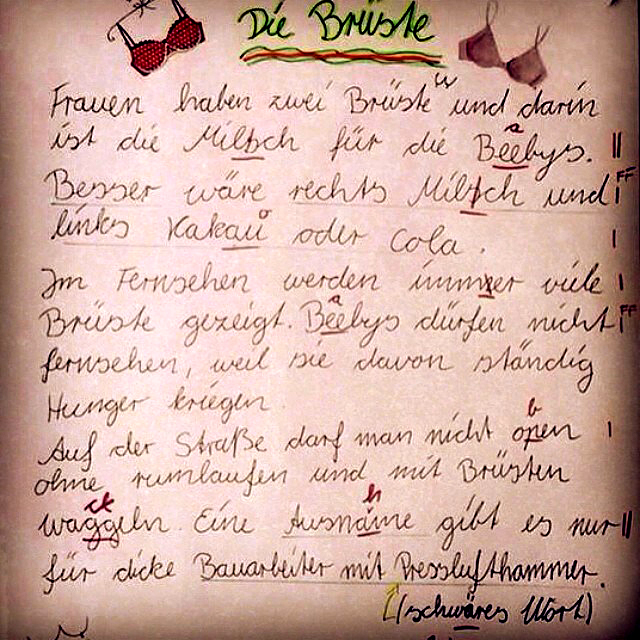 Die Brüste
Frauen haben zwei Brüste und darin
ist die Miltsch für die Beebys. ||
a
Besser wäre rechts Miltsch und | FF
links Kakau oder Cola. |
o
Im Fernsehen werden immer viele |
Brüste gezeigt. Beebys dürfen nicht | FF
a
fernsehen, weil sie davon ständig
Hunger kriegen.
Auf der Straße darf man nicht open |
b
ohne rumlaufen und mit Brüsten
waggeln. Eine Ausnäme gibt es nur ||
ck h
für dicke Bauarbeiter mit Presslufthammer.
(schwäres Wort)